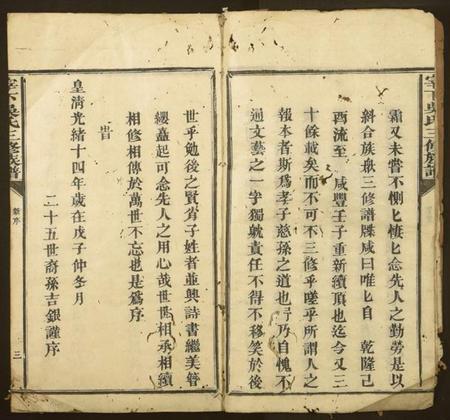 霜又未嘗不惻匕悽匕念先人之勤勞是以
斜合族眾三修譜牒咸曰唯匕自 乾隆己
酉流至 咸豐壬子重新續頂也迄今又三
十餘載矣而不可不三修乎嗟乎所謂人之
報本者斯爲孝子慈孫之道也吾乃自愧不
通文藝之一字獨躭責任不得不移笑於後
世乎勉後之賢肯子姓者並興詩書繼美簪
纓矗起可念先人之用心哉世世相承相續
相修相傳於萬世不忘也是爲序
旹
皇淸光緒十四年歲在戊子仲冬月
二十五世裔孫吉銀謹序
下吳氏三修族譜
新序
三
下吳氏三修族譜